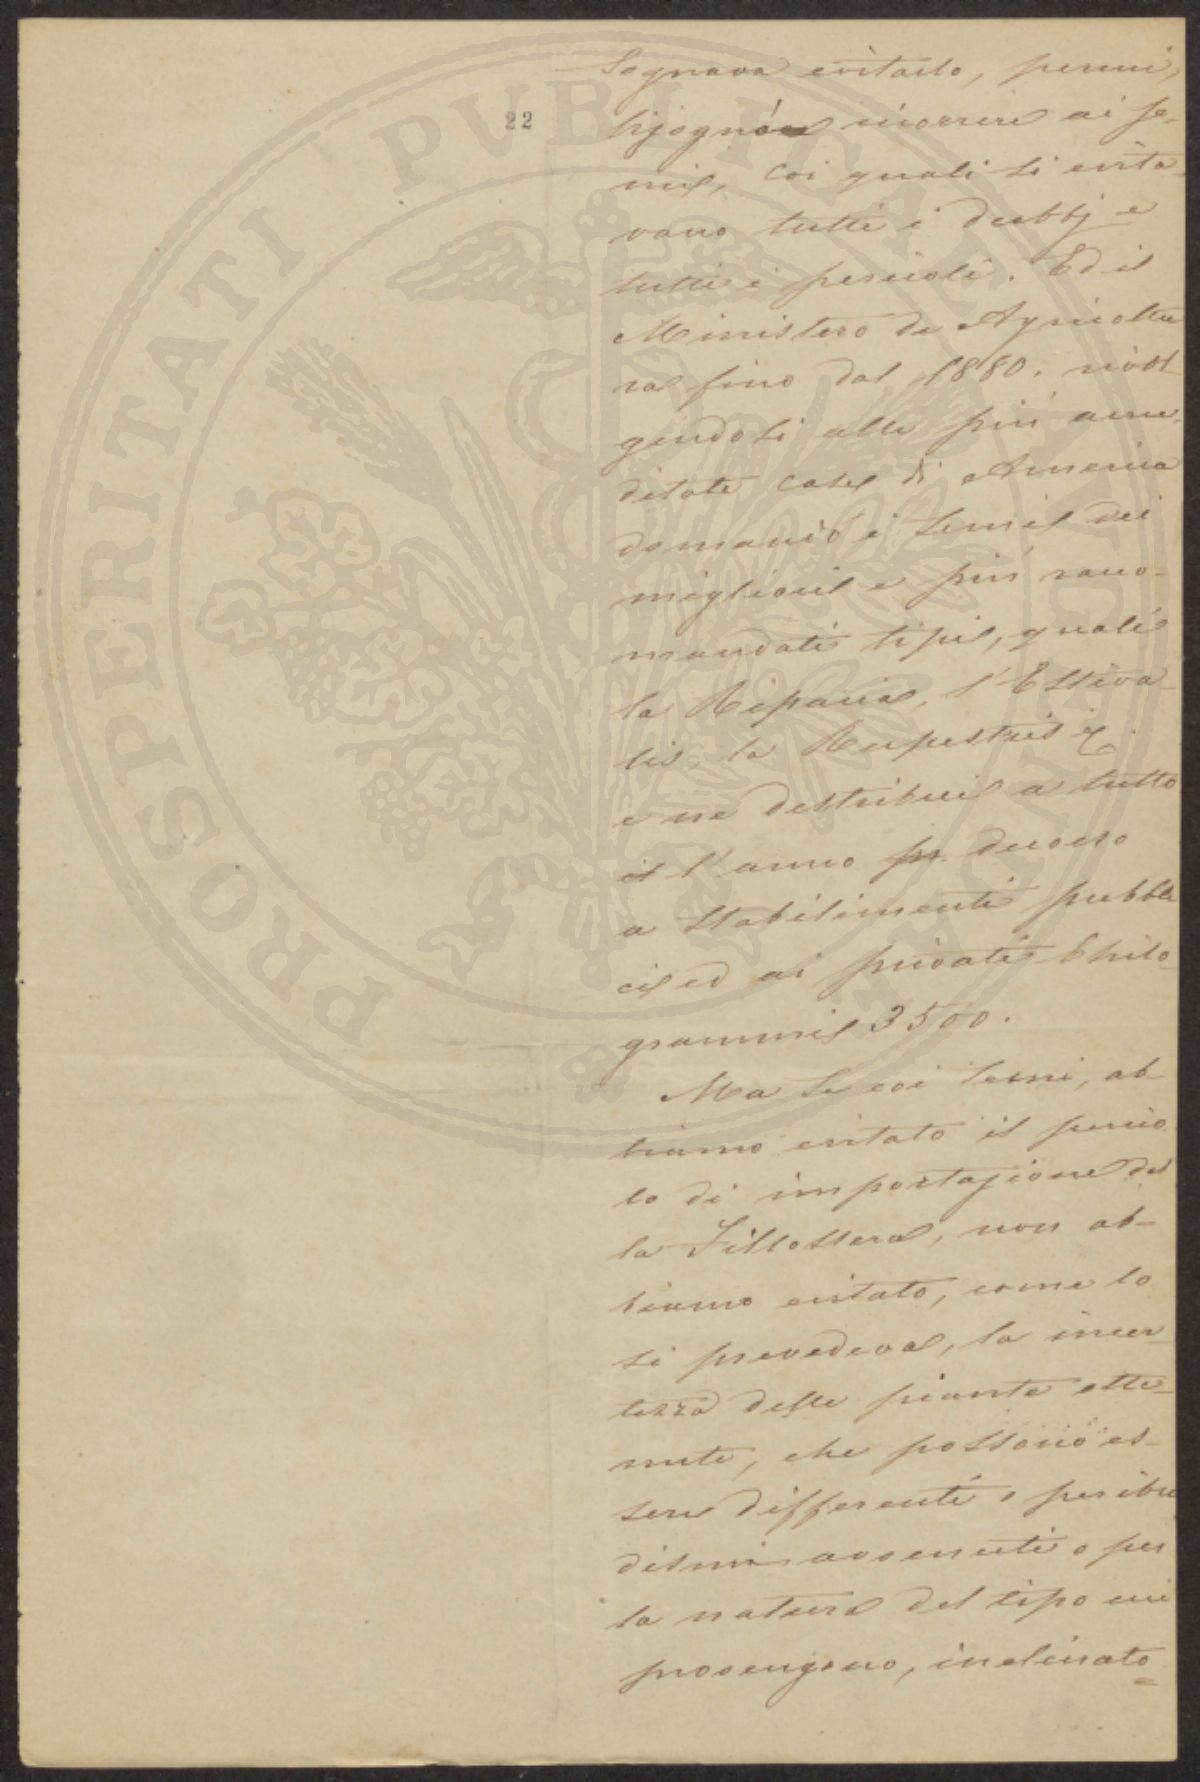 22
sognava evitarlo, perciò,
bisognò ricorrere ai se-
mi, coi quali si evita-
vano tutti i dubbj e
tutti i pericoli. Ed il
Ministero di Agricoltu
ra fino dal 1880. rivol-
gendosi alle più accre-
ditate case di America
domandò i semi dei
migliori e più racco-
mandati tipi, quali
la Riparia, l'Estiva-
lis, la Rupestris
e ne distribuì a tutto
il l'anno pr. decorso
a stabilimenti pubbli
ci ed ai privati Chilo-
grammi 3500.
Ma se coi semi, ab-
biamo evitato il perico
lo di importazione del
la Fillossera, non ab-
biamo evitato, come lo
si prevedeva, la incer-
tezza delle piante otte-
nute, che possono es-
sere differenti o per ibri
dismi avvenuti o per
la natura del tipo cui
provengono, inclinato
PROSPERITATI PVBLICAE